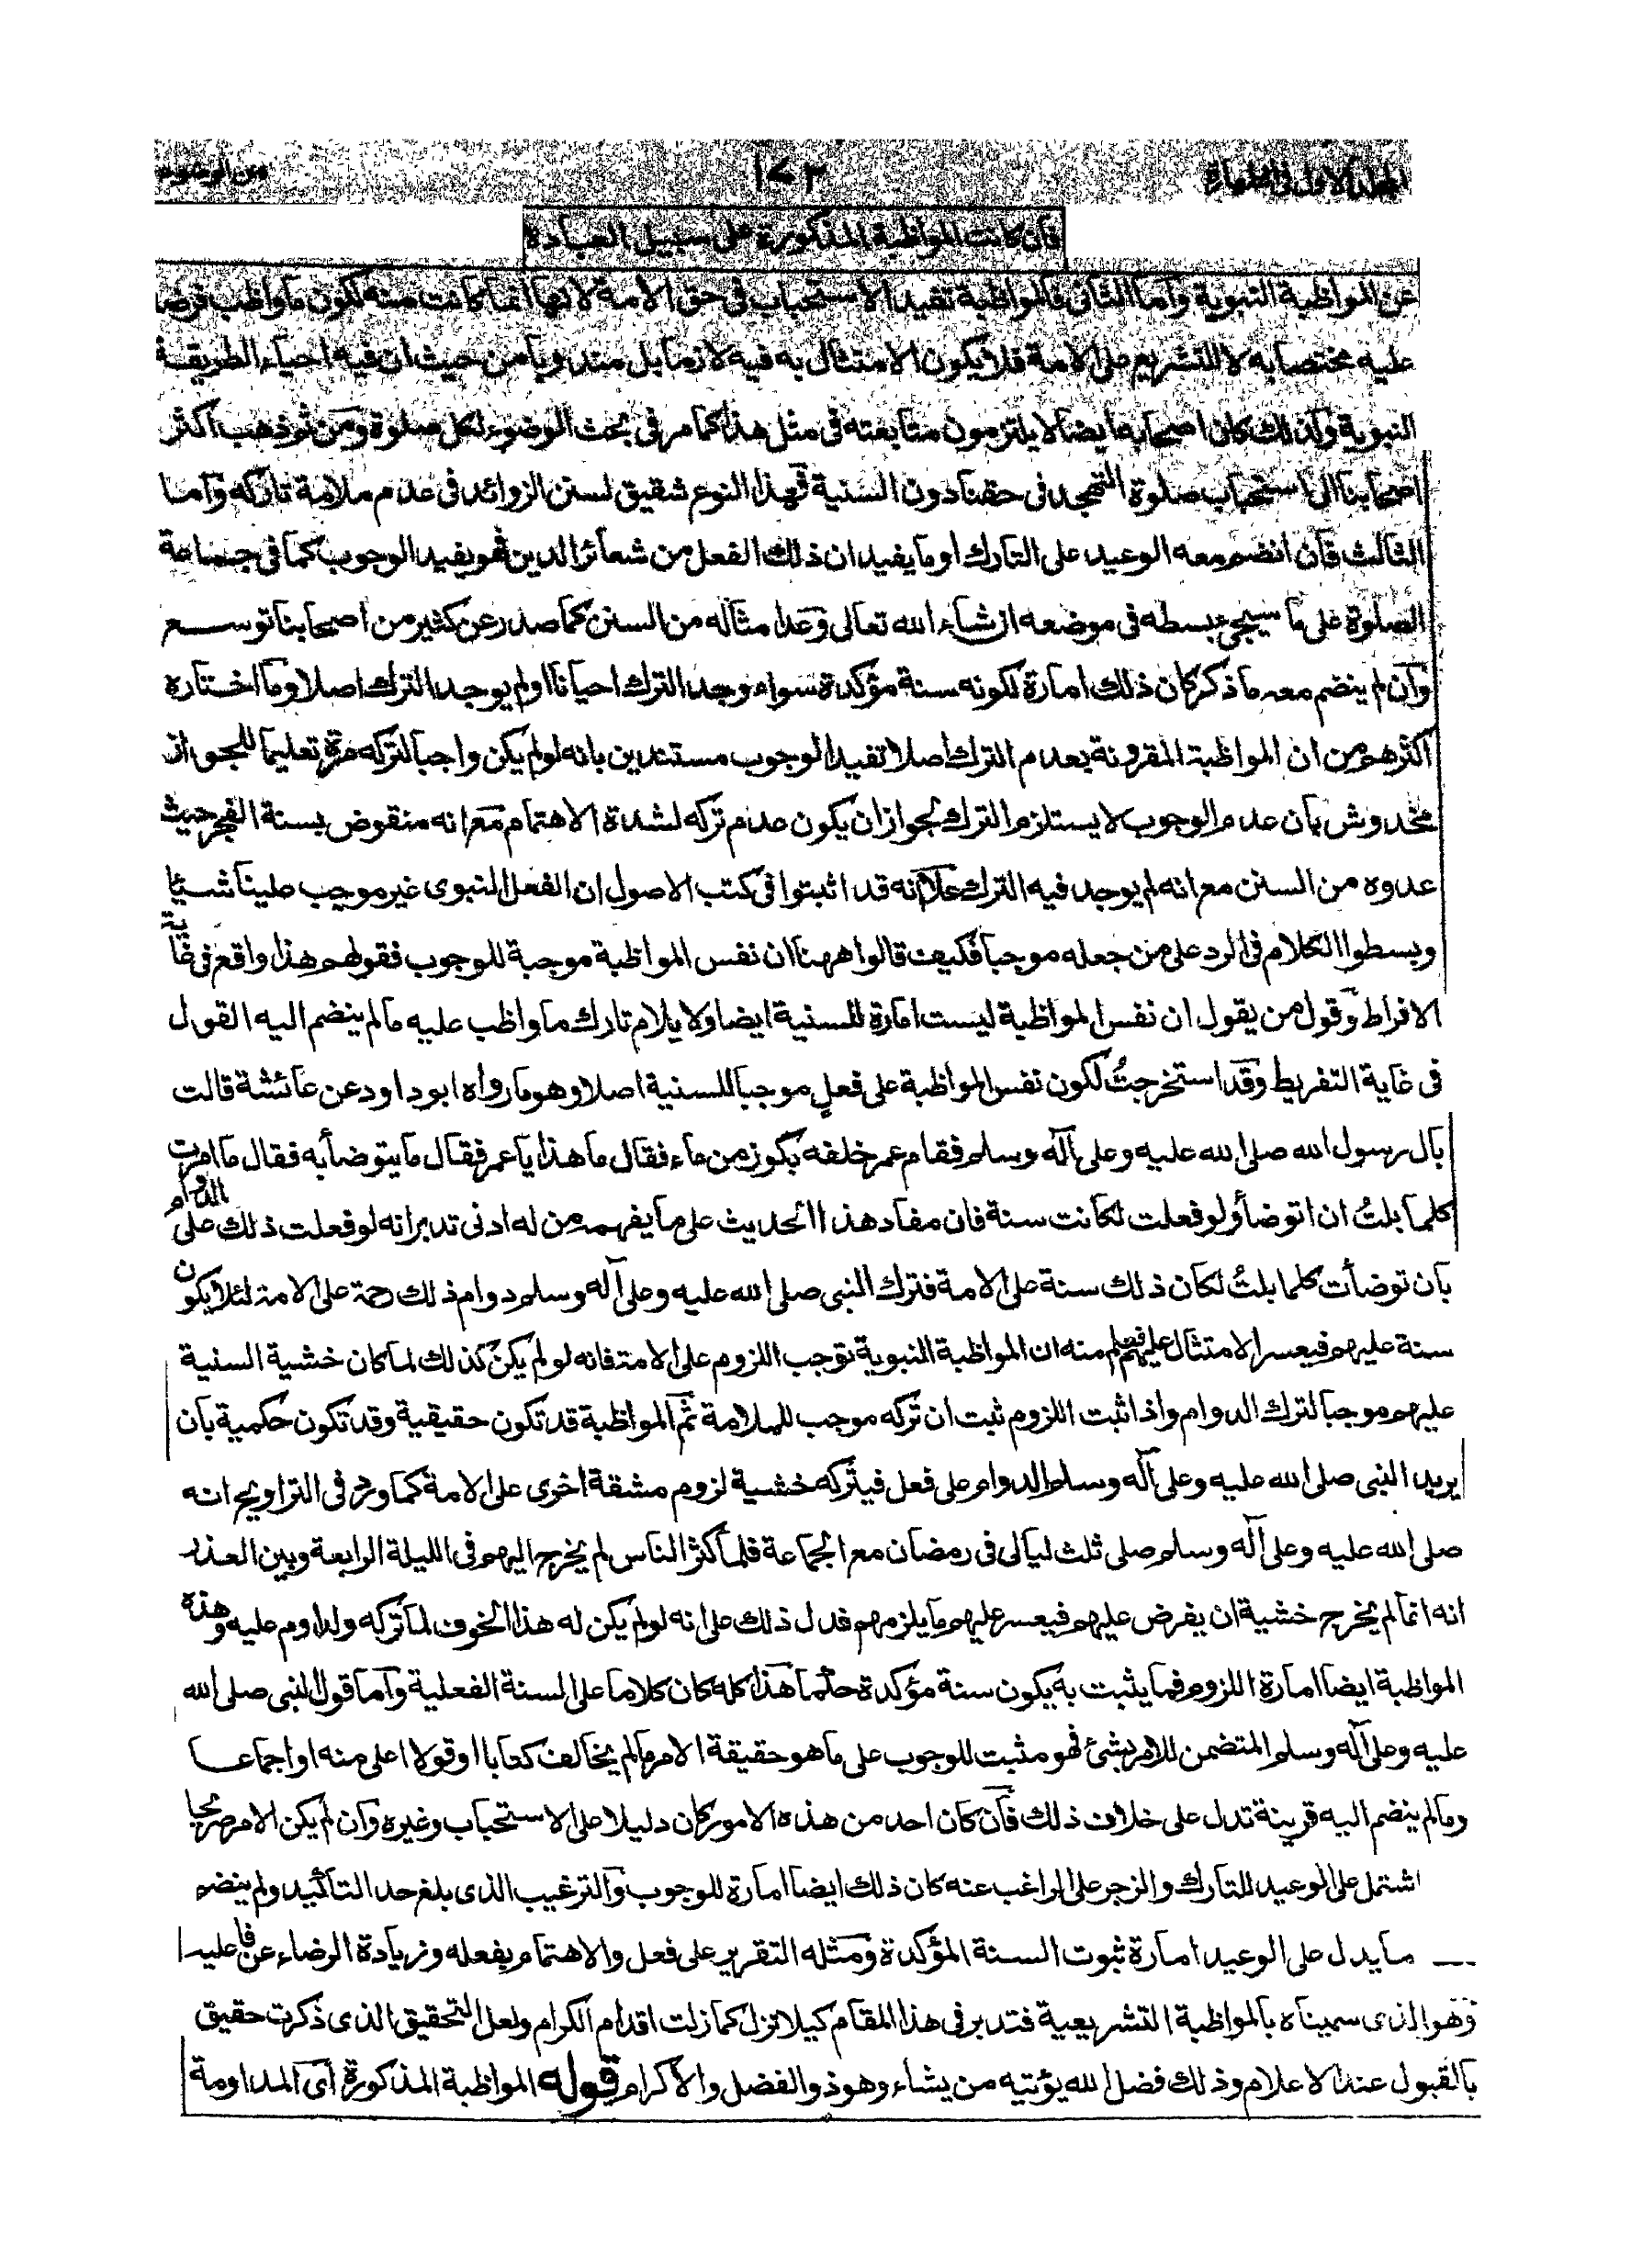 المجلد الاول فى الطهارة ١٧٣ من الوضوء
فان كانت المواظبة المذكورة على سبيل العبادة
عن المواظبة النبوية وآما الثانى فالمواظبة تفيد الاستحباب فى حق الامة لانها انما كانت منه لكون ما واظب فرضا
عليه مختصا به لا للتشريع على الامة فلا يكون الامتثال به فيه لازما بل مندوبا من حيث ان فيه احياء الطريقة
النبوية ولذلك كان اصحابه ايضا لا يلتزمون متابعته فى مثل هذا كما مر فى بحث الوضوء لكل صلوة ومن ثم ذهب اكثر
اصحابنا الى استحباب صلوة التهجد فى حقنا دون السنية فهذا النوع شقيق لسنن الزوائد فى عدم ملامة تاركه وآما
الثالث فآن انضم معه الوعيد على التارك او ما يفيد ان ذلك الفعل من شعائر الدين فهو يفيد الوجوب كما فى جماعة
الصلوة على ما سيجئ بسطه فى موضعه ان شاء الله تعالى وعد امثاله من السنن كما صدر عن كثير من اصحابنا توسع
وآن لم ينضم معه ما ذكر كان ذلك امارة لكونه سنة مؤكدة سواء وجد الترك احيانا او لم يوجد الترك اصلا وما اختاره
اكثرهم من ان المواظبة المقرونة بعدم الترك اصلا تفيد الوجوب مستندين بانه لو لم يكن واجبا لتركه مرة تعليما للجواز
مخدوش بان عدم الوجوب لا يستلزم الترك لجواز ان يكون عدم تركه لشدة الاهتمام مع انه منقوض بسنة الفجر حيث
عدوه من السنن مع انه لم يوجد فيه الترك علا انه قد اثبتوا فى كتب الاصول ان الفعل النبوى غير موجب علينا شيئا
وبسطوا الكلام فى الرد على من جعله موجبا فكيف قالوا ههنا ان نفس المواظبة موجبة للوجوب فقولهم هذا واقع فى غاية
الافراط وقول من يقول ان نفس المواظبة ليست امارة للسنية ايضا ولا يلام تارك ما واظب عليه ما لم ينضم اليه القول
فى غاية التفريط وقد استخرجتُ لكون نفس المواظبة على فعلٍ موجبا للسنية اصلا وهو ما رواه ابو داود عن عائشة قالت
بال رسول الله صلى الله عليه وعلى آله وسلم فقام عمر خلفه بكوز من ماء فقال ما هذا يا عمر فقال ما يتوضأ به فقال ما امرت
كلما بلتُ ان اتوضأ ولو فعلت لكانت سنة فان مفاد هذا الحديث على ما يفهمه من له ادنى تدبر انه لو فعلت ذلك على الدوام
بان توضأت كلما بلتُ لكان ذلك سنة على الامة فترك النبى صلى الله عليه وعلى آله وسلم دوام ذلك رحمة على الامة لئلا يكون
سنة عليهم فيعسر الامتثال عليهم فعلم منه ان المواظبة النبوية توجب اللزوم على الامة فانه لو لم يكن كذلك لما كان خشية السنية
عليهم موجبا لترك الدوام واذا ثبت اللزوم ثبت ان تركه موجب للملامة ثم المواظبة قد تكون حقيقية وقد تكون حكمية بان
يريد النبى صلى الله عليه وعلى آله وسلم الدوام على فعل فيتركه خشية لزوم مشقة اخرى على الامة كما ورد فى التراويح انه
صلى الله عليه وعلى آله وسلم صلى ثلث ليالى فى رمضان مع الجماعة فلما كثر الناس لم يخرج اليهم فى الليلة الرابعة وبين العذر
انه انما لم يخرج خشية ان يفرض عليهم فيعسر عليهم ما يلزمهم فدل ذلك على انه لو لم يكن له هذا الخوف لما تركه ولداوم عليه وهذه
المواظبة ايضا امارة اللزوم فما يثبت به يكون سنة مؤكدة حتما هذا كله كان كلاما على السنة الفعلية وآما قول النبى صلى الله
عليه وعلى آله وسلم المتضمن للامر بشئ فهو مثبت للوجوب على ما هو حقيقة الامر ما لم يخالف كتابا او قولا اعلى منه او اجماعا
وما لم ينضم اليه قرينة تدل على خلاف ذلك فآن كان احد من هذه الامور كان دليلا على الاستحباب وغيره وآن لم يكن الامر صريحا
اشتمل على الوعيد للتارك والزجر على الراغب عنه كان ذلك ايضا امارة للوجوب والترغيب الذى بلغ حد التأكيد ولم ينضم
ما يدل على الوعيد امارة ثبوت السنة المؤكدة ومثله التقرير على فعل والاهتمام بفعله وزيادة الرضاء عن فاعليه
وهو الذى سميناه بالمواظبة التشريعية فتدبر فى هذا المقام كيلا تزل كما زلت اقدام الكرام ولعل التحقيق الذى ذكرت حقيق
بالقبول عند الاعلام وذلك فضل الله يؤتيه من يشاء وهو ذو الفضل والاكرام قوله المواظبة المذكورة آى المداومة